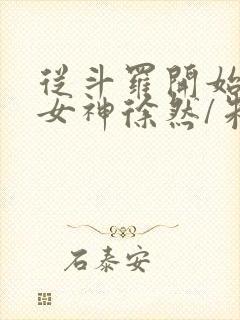 從斗羅開始
女神徐然/朱
石泰安